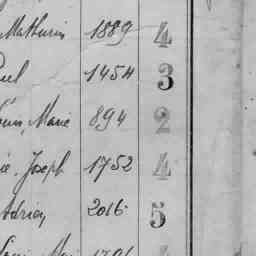 Mathurin 1889 4
Paul 1454 3
Louis, Marie 894 2
Joseph 1752 4
Adrien 2016 5